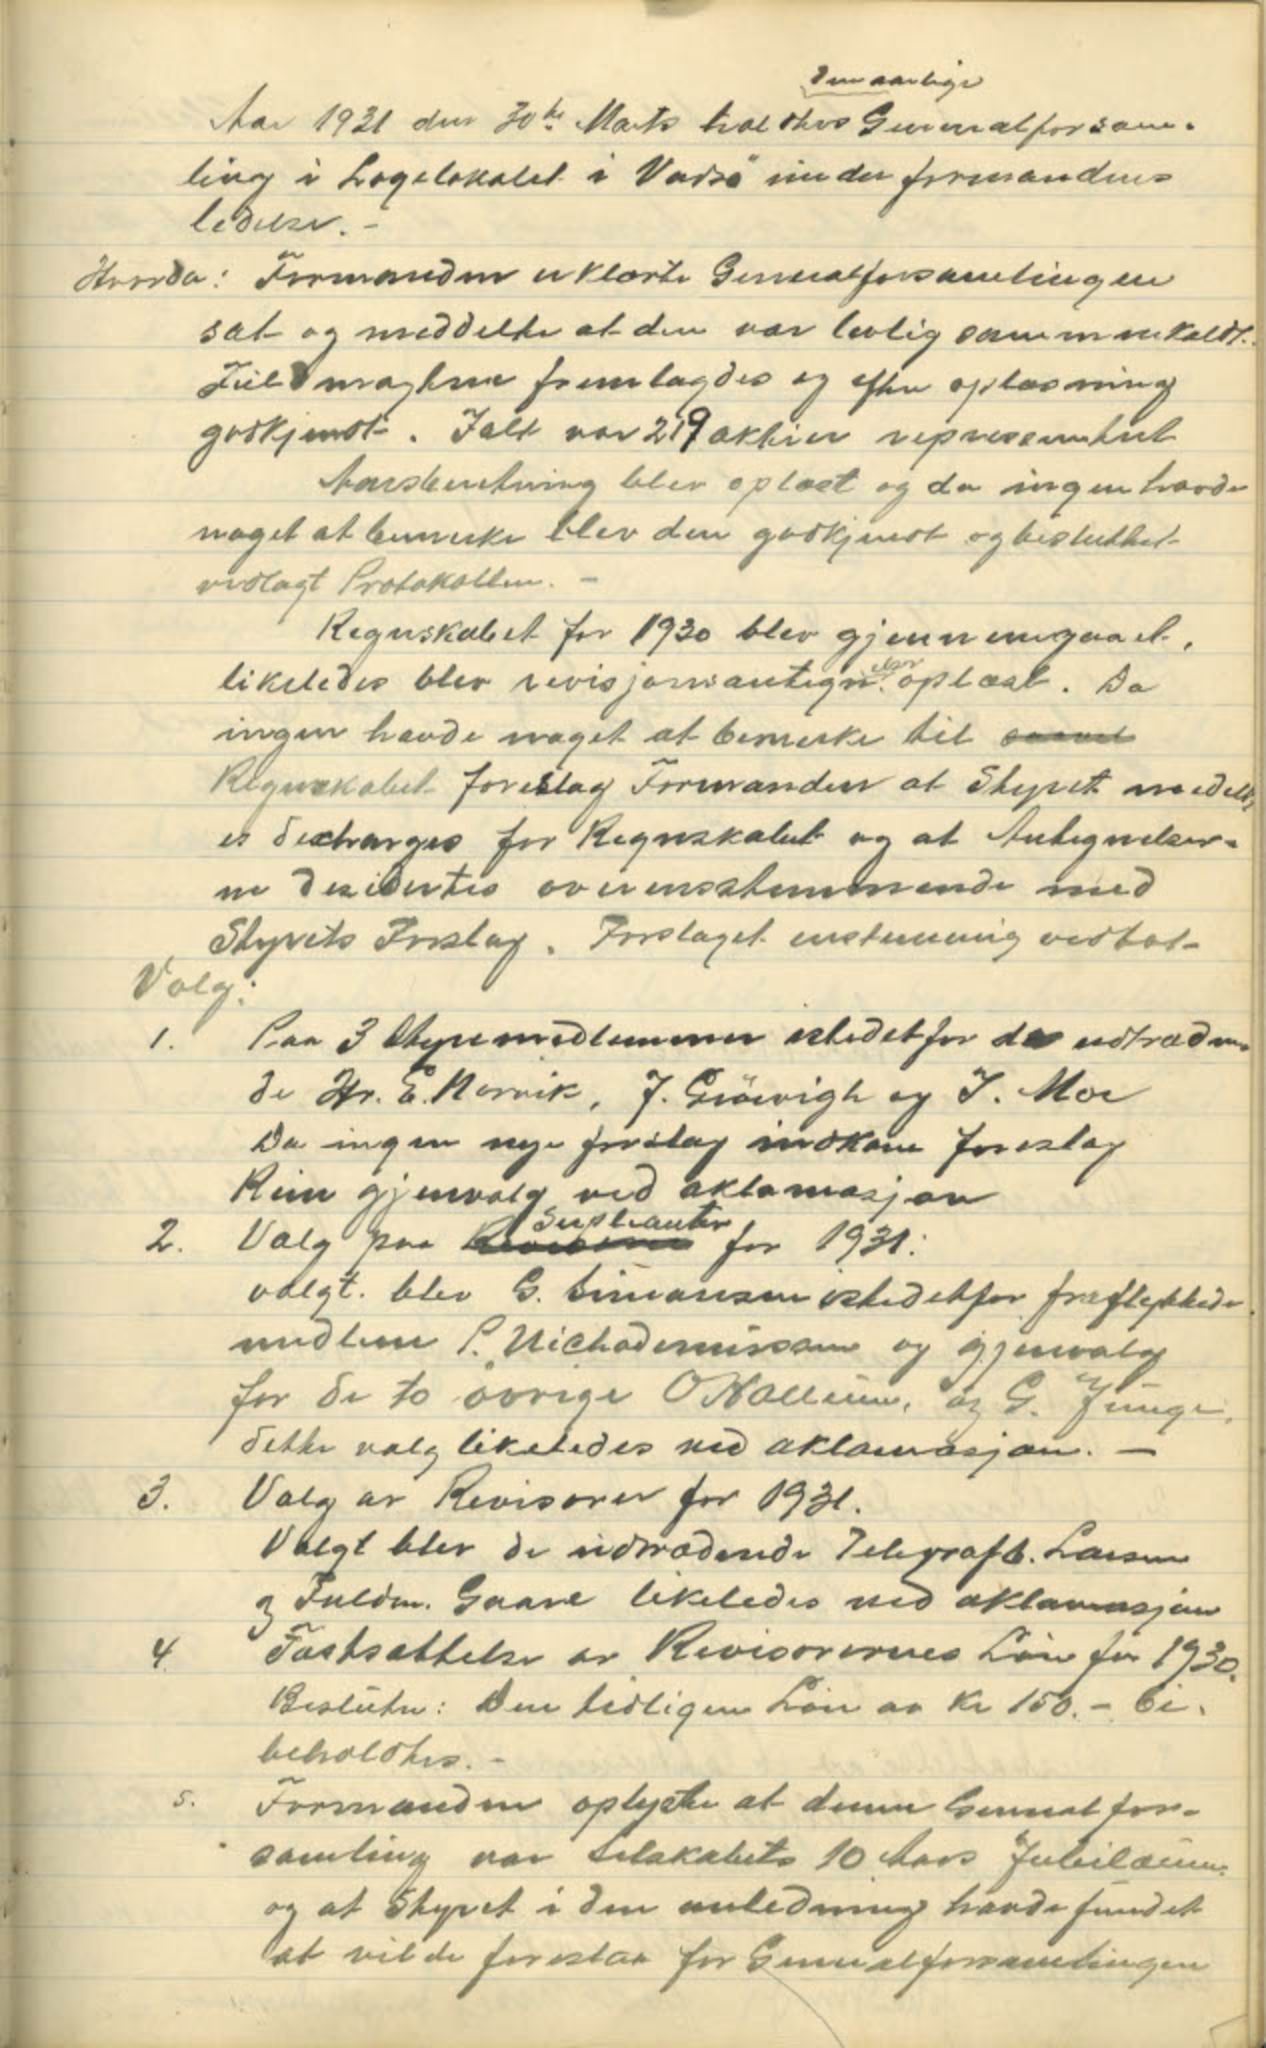 den aarlige
Aar 1931 den 30te Marts holdtes Generalforsam-
ling i Logelokalet i Vadsö under formandens
ledelse. -
Hvorda: Formanden erklærte Generalforsamlingen
sat og meddelte at den var lovlig sammenkaldt.
Fuldmagterne fremlagdes og efter oplæsning
godkjendt. Ialt var 219 aktier representert
Aarsberetning blev oplæst og da ingen havde
noget at bemerke blev den godkjendt og besluttet
vedlagt Protokollen. -
Regnskabet for 1930 blev gjennemgaaet,
likeledes blev revisjonsantegnelser oplæst. Da
ingen havde noget at bemerke til saavel
Regnskabet foreslog Formanden at Styret meddelt
es decharges for Regnskabet og at Antegnelser-
ne desidertes overensstemmende med
Styrets Forslag. Forslaget enstemmig vedtat
Valg:
1. Paa 3 Styremedlemmer istedetfor de udtræden-
de Hr. E. Norvik, J. Grövigh og I. Moe
Da ingen nye forslag indkom foreslog
Rein gjenvalg ved aklamasjon
2. Valg paa Suplianter for 1931:
valgt. blev G. Simonsen istedetfor fraflyttede
medlem P. Nichodemussen og gjenvalg
for de to övrige O Hallum, og G. Junge,
dette valg likeledes ved aklamasjon. -
3. Valg av Revisorer for 1931.
Valgt blev de udtrædende Telegrafb. Larsen
og Fuldm. Gaare likeledes ved aklamasjon
4 Fastsættelse av Revisorernes Lön for 1930.
Beslutn: Den tidligere Lön av Kr 150. - bi-
beholdtes. -
5. Formanden oplyste at denne Generalfor-
samling var Selskabets 10 Aars Jubilæum
og at Styret i den anledning havde fundet
at vilde foreslaa for Generalforsamlingen